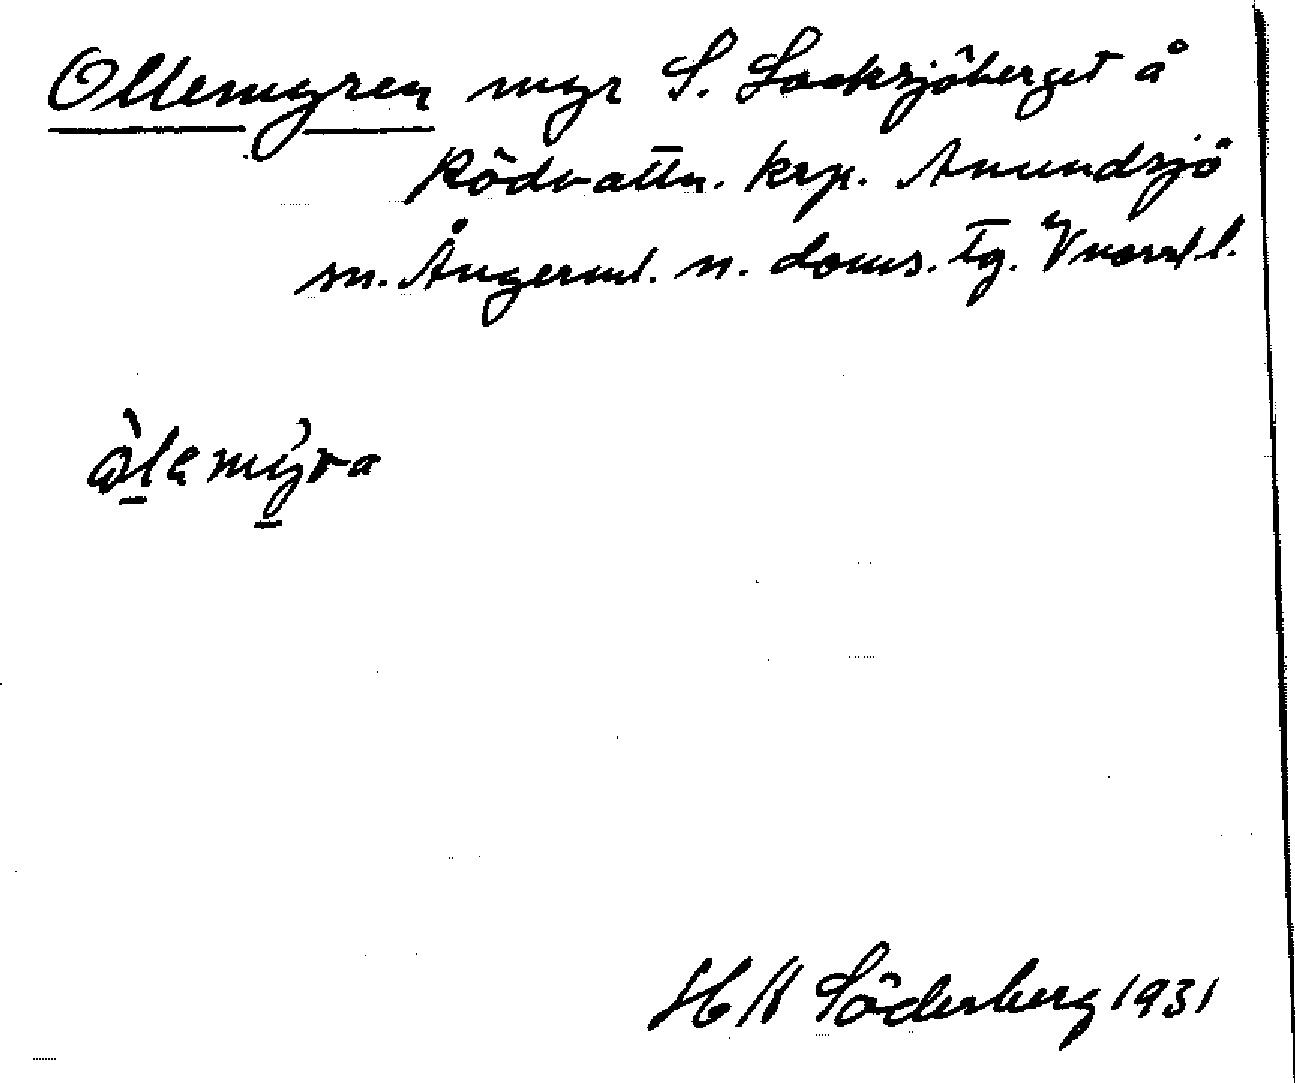 Ollemyren myr S. Locksjöberget å
Rödvattn. krp. Anundsjö
sn. Ångerml. n. doms. tg. Vnorrl l.
àlemýra
H A Söderberg 1931